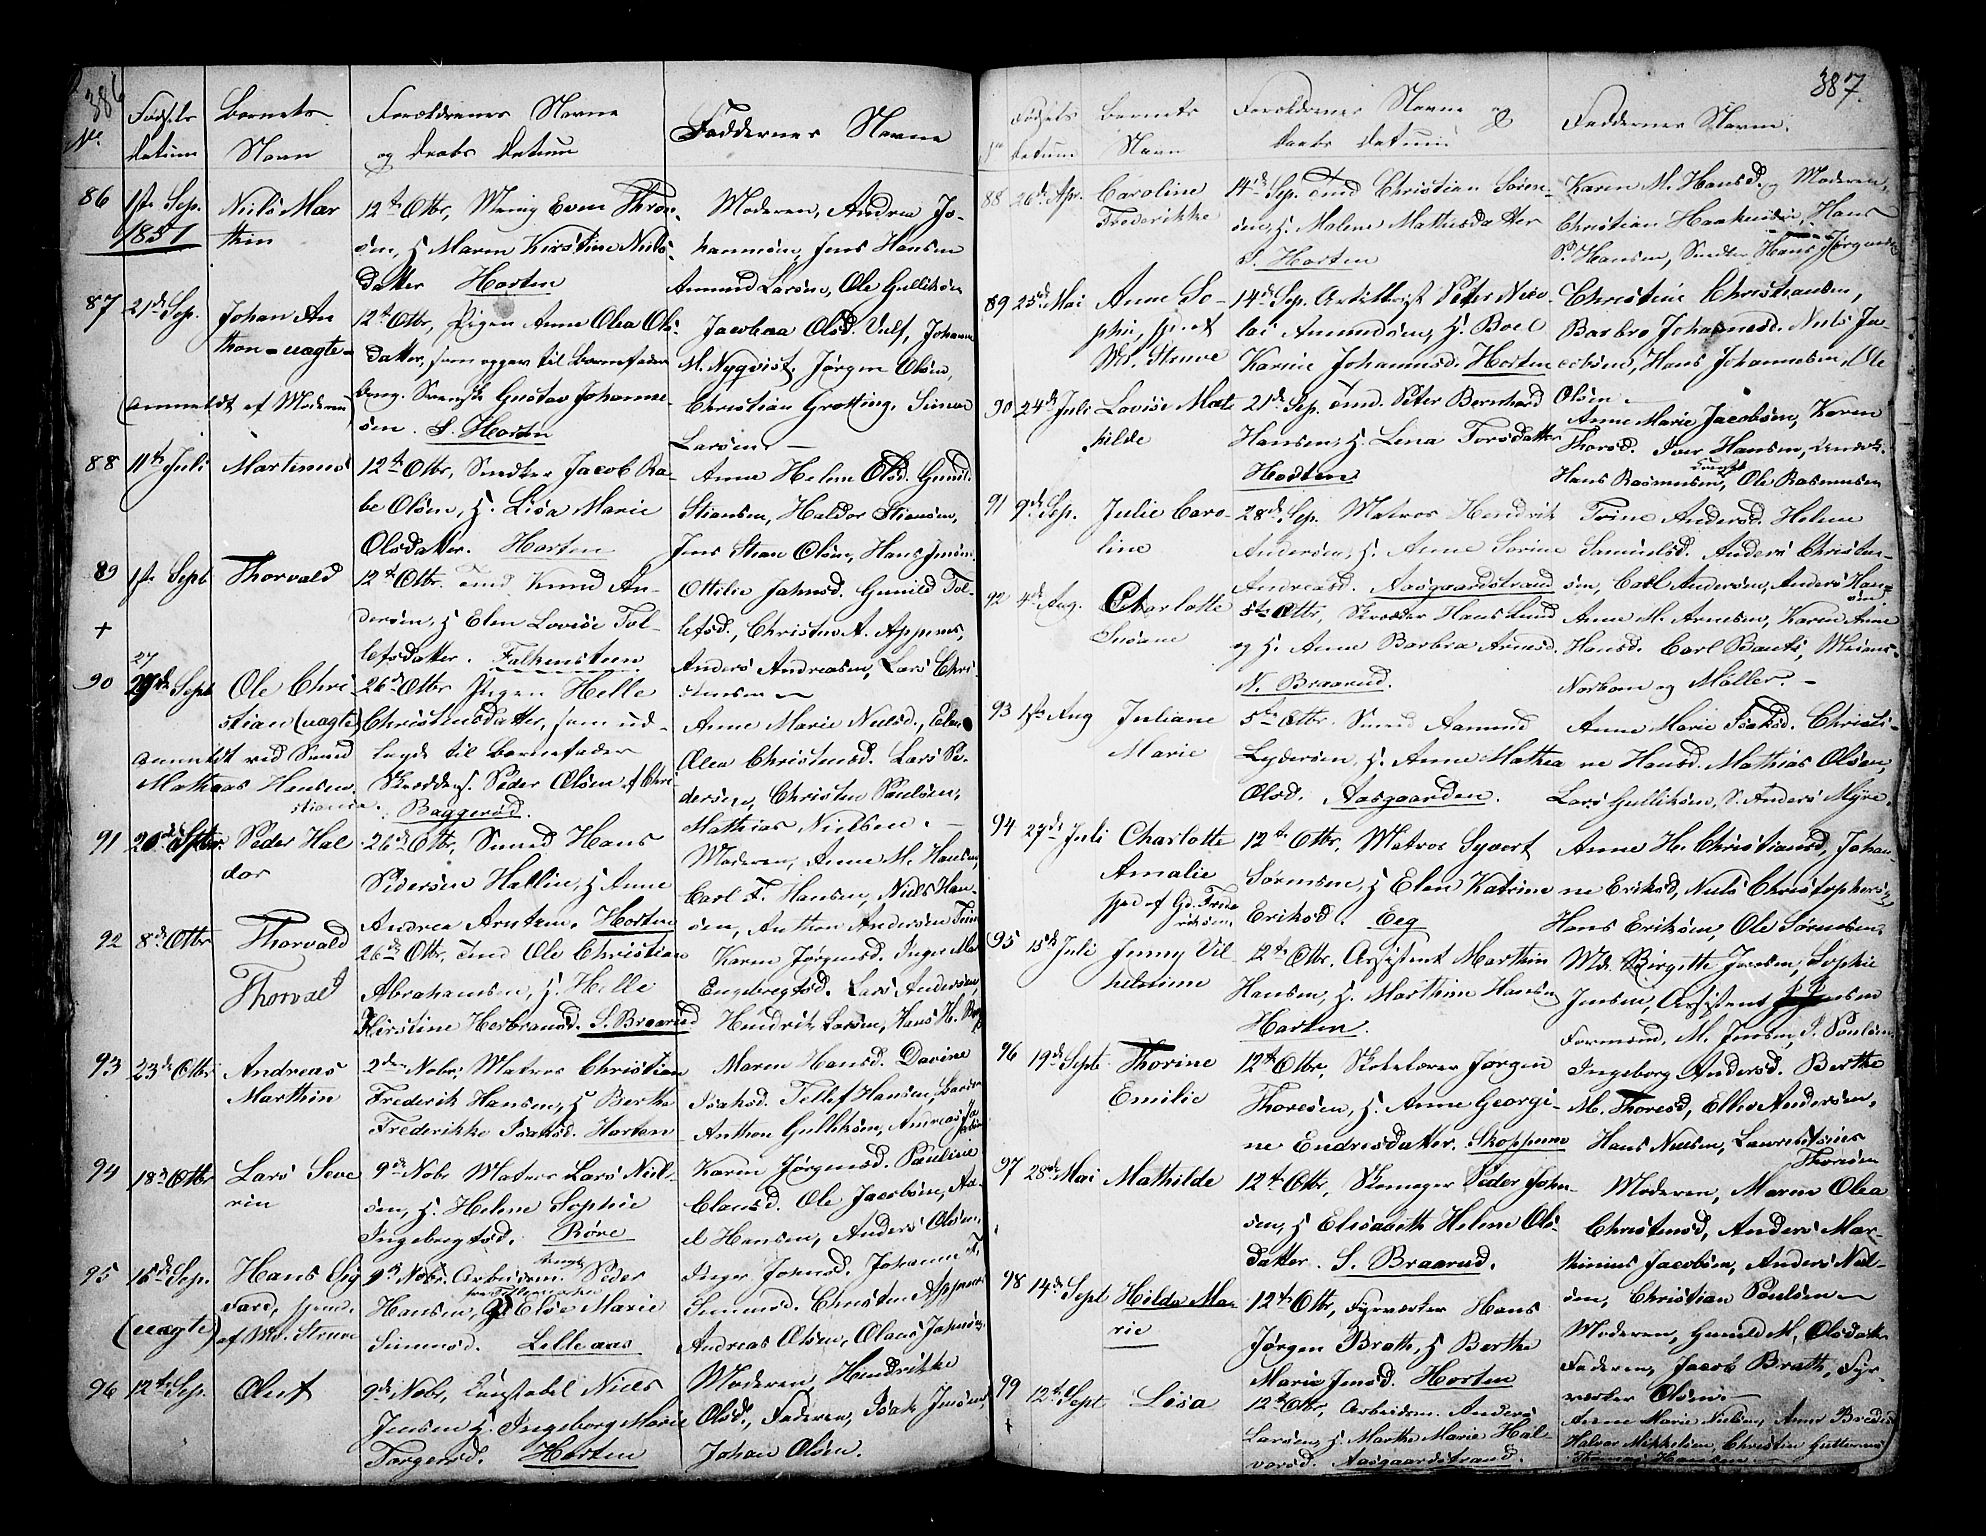 386
No
Fødsels
datum
Barnets
Navn
Forældrenes Navne
og Daabs datum
Faddernes Navne
86
1ste Sep.
1851
Niels Mar
thin
12te Otbr,
Even Thron
sen, H. Maren Kirstine Niels
datter Horten
Moderen, Andrea Jo-
hannsen, Jens Hansen
Amund Larsen, Ole Gulliksen
87
21de Sep.
Johan An
thon - uægte -
(anmeldt af Moderen)
12te Otbr, Pigen Anne Olea Ols
datter, som opgav til barnefader
Svenske Gustav Johanne-
sen. S. Horten
Jacobea Olsd. Ulf, Johanne
M. Nyqvist, Jørgen Olsen,
Christian Grotting, Simon
Larsen. -
88
11te Juli
Martinus
12te Otbr, Snedker Jacob Ra
be Olsen, H. Lisa Marie
Olsdatter. Horten
Anne Helene Olsd. Gunild
Stiansen, Haldor Stiansen,
Jens Stian Olsen, Hans Jensen
89
1ste Sept
+
Thorvald
12te Otbr. Knud An-
dersen, H. Elen Lovise Tol-
lefsdatter. Falkensteen
Ottilie Jahnsd. Gunild Tol-
lefsd., Christen A. Appenes,
Anders Andreasen, Lars Chri
stensen -
90
27
27de Sept
Ole Chri
stian (uægte)
anmeldt ved
Mathias Hansen
26de Otbr Pigen Helle
Christensdatter, som ud-
lagde til barnefader
Peder Olsen af Chri
stiania.
Baggerød.
Anne Marie Nielsd.,
Olea Christensd. Lars Pe-
dersen, Christen Paulsen,
Mathias Nielsen. -
91
20de Septbr.
Peder Hal
dor
26de Otbr, Hans
Pedersen Hallin, H. Anne
Andrea Arntsen. Horten
Moderen, Anne M. Hansen,
Carl F. Hansen, Niels Han-
sen, Anthon Andersen
92
8de Otbr
Thorvald
Thorvald
26de Otbr, Ole Christian
Abrahamsen, H. Helle
Kirstine Herbransd. S. Braarud
Karen Jørgensd. Inger
Engebregtsd. Lars Andersen,
Hendrik Larsen, Hans H.
93
23de Otbr
Andreas
Marthin
2den Nobr, Matros Christian
Frederik Hansen, H. Berthe
Frederikke Isaksd. Horten
Maren Hansd. Davine
Isaksd. Tellef Hansen,
Anthon Gulliksen, Andreas
94
18de Otbr
Lars Seve
rin
9de Nobr Matros Lars Niel-
sen, H. Helene Sophie
Ingebregtsd. Røre
Karen Jørgensd. Pauline
Clausd. Ole Jacobsen,
Hansen, Anders Olsen.
95
15de Sep.
(uægte)
Hans Sig
vard,
af Md. Struve
9de Nobr. Arbeidsm. Peder
Hansen, og Else Marie
Simensd. Lilleaas
Inger Johnsd. Johanne F.
Simensd. Christen Appenes
Andreas Olsen, Olaus
96
12te Sep.
Oluf
9de Nobr, Niels
Jensen H. Ingeborg Marie
Torgersd. Horten
Moderen, Hendrikke
Olsd., Faderen, Isak Jensen,
Johan Olsen.
387.
No
Fødsels
datum
Barnets
Navn
Forældrenes Navne og
Daabs datum
Faddernes Navne.
88
26de Apr.
Caroline
Frederikke
14de Sep. Christian Søren-
sen, H. Malene Mathisdatter
S. Horten
Karen M. Hansd. og Moderen,
Christian Haakensen, Hans
P. Hansen, Snedker Hans Jørgensen
89
25de Mai
Anne So-
phie,
Md. Struve
14de Sep. Peter Nico-
lai Amundsen, H. Boel
Karine Johannesd. Horten
Christine Christiansen,
Barbro Johannesd. Niels Ja-
cobsen, Hans Johannesen, Ole
Olsen. -
90
24de Juli
Lovise Mat
hilde
21de Sep. Peter Bernhard
Hansen, H. Lena Torsdatter
Horten
Anne Marie Jacobsen, Karen
Thorsd. Iver Hansen,
Hans Rasmussen, Ole Rasmussen
91
9de Sep.
Julie Caro-
line
28de Sep. Matros Hendrik
Andersen, H. Anne Sorine
Andreasd. Aasgaardstrand
Trine Andersd. Helene
Samuelsd. Anders Christen-
sen, Carl Andersen, Anders Han-
sen.
92
4de Aug.
Charlotte
Susane
5te Otbr, Skræder Hans Lund
og H. Anne Barbra Arnesd.
N. Braarud.
Anne M. Arnesen, Karen Anne
Hansd. Carl
Norbom og Møller. -
93
1ste Aug
Juliane
Marie
5te Otbr. Aamund
Lydersen, H. Anne Mathea
Olsd. Aasgaarden.
Anne Marie Isaksd. Christi-
ne Hansd. Mathias Olsen,
Lars Gulliksen, S. Anders Myre.
94
27de Juli
Charlotte
Amalie
12te Otbr. Matros Syvert
Sørensen, H. Elen Katrine
Eriksd. Eeg
Anne H. Christiansd, Johan-
ne Eriksd, Niels Christophers.,
Hans Eriksen, Ole Sørensen.
95
15de Juli
Jenny Vil-
helmine
12te Otbr. Assistent Marthin
Hansen, H. Marthine Hansen
Horten.
Md. Birgitte Jensen, Sophie
Jensen, Assistent
M. Jensen, P. Poulsen.
96
19de Septb
Thorine
Emilie
12te Otbr, Skolelærer Jørgen
Thoresen, H. Anne Georgi-
ne Endresdatter. Skoppum
Ingeborg Andersd. Berthe
M. Thoresd, Ellev Andersen,
Hans Nielsen, Lauretsius
Thoresen
97
28de Mai
Mathilde
12te Otbr, Skomager Peder John-
sen, H. Elisabeth Helene Ols
datter. S. Braarud.
Moderen, Maren Olea
Christensd, Anders Mar-
thinius Jacobsen, Anders Niel-
sen, Christian Poulsen -
98
14de Sept
Hilda Ma-
rie
12te Otbr, Fyrværker Hans
Jørgen Brath, H. Berthe
Maria Jensd. Horten
Moderen, Gunild M. Olsdatter
Faderen, Jacob Brath, Fyr-
værker Olsen -
99
12te Sept
+
Lisa
12te Otbr, Arbeidsm. Anders
Larsen, H. Marthe Marie Hal-
vorsd. Aasgaardstrand.
Anne Marie Nielsen, Anne
Halvor Mikkelsen, Christen Guttormsen
Thomas Hansen -